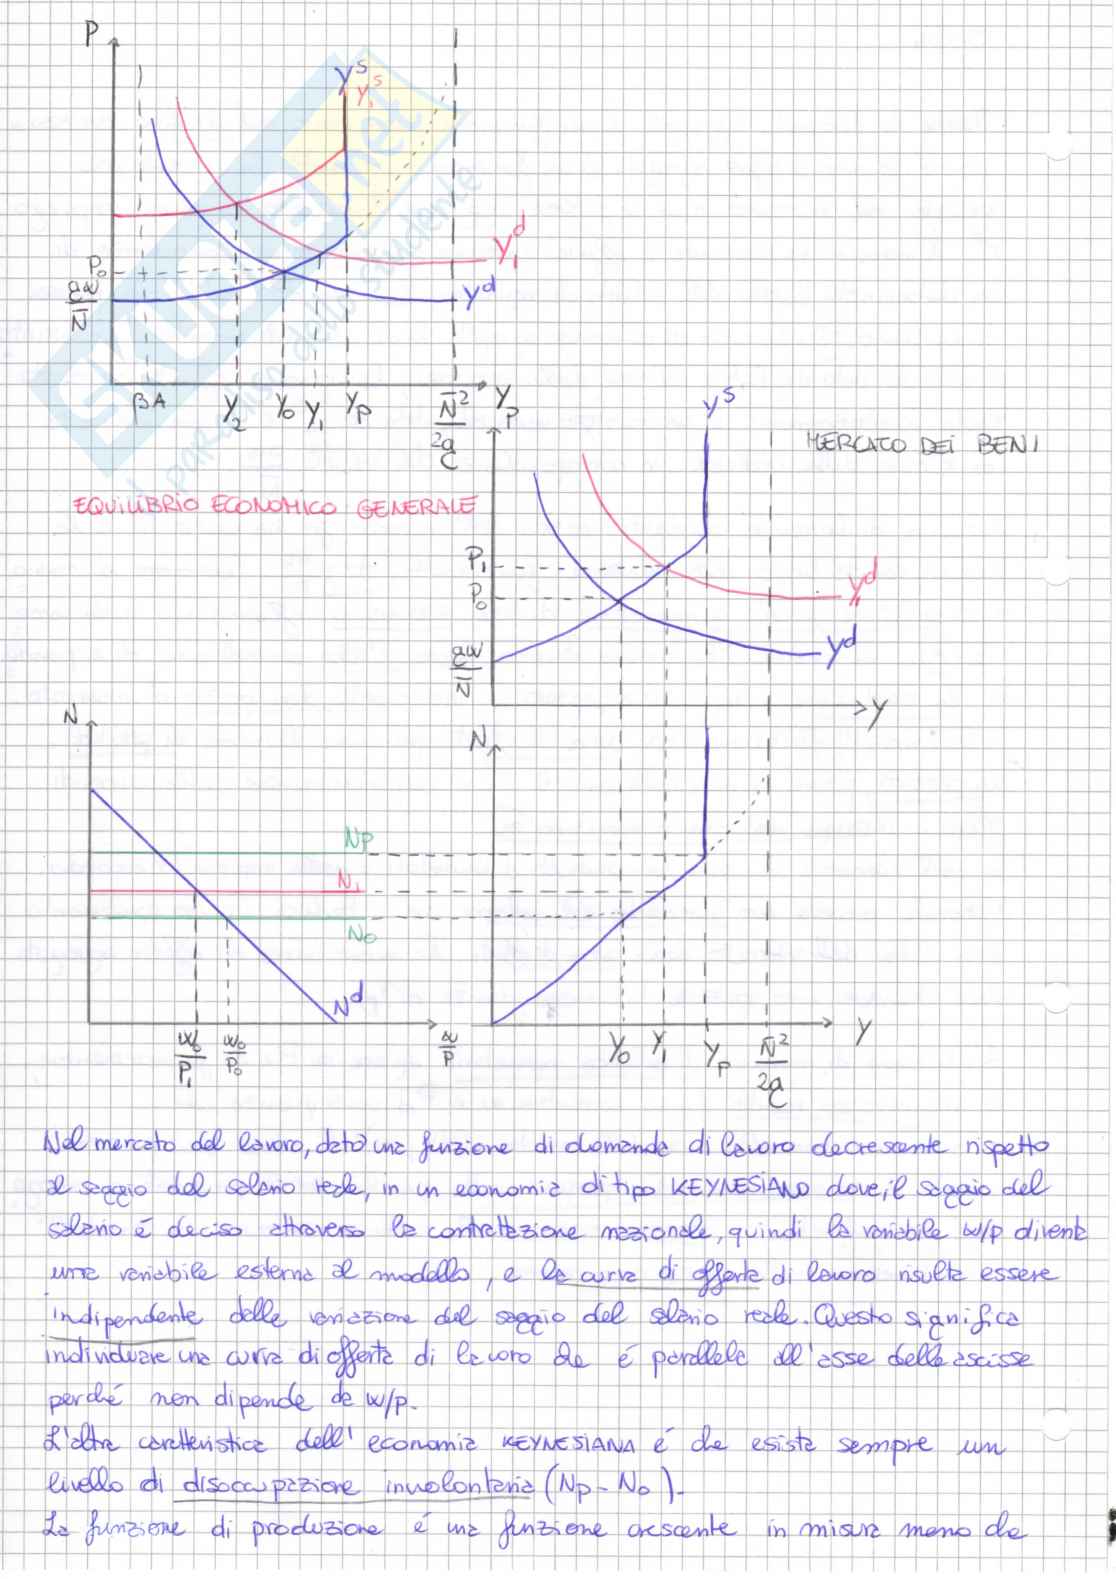 P
Y^S
Y_1^S
Y_1^d
Y^d
P_0
aw/N̄
βA Y_2 Y_0 Y_1 Y_P N̄²/2a Y
C
SKUOLA.net
il paradiso dello studente
EQUILIBRIO ECONOMICO GENERALE
P
Y^S
MERCATO DEI BENI
P_1
P_0
aw/N̄
Y_1^d
Y^d
Y
N
N_P
N_1
N_0
N^d
w_0/P_1 w_0/P_0 w/P
N
Y_0 Y_1 Y_P N̄²/2a Y
C
Nel mercato del lavoro, dato una funzione di domanda di lavoro decrescente rispetto
al saggio del salario reale, in un economia di tipo KEYNESIANO dove, il saggio del
salario é deciso attraverso la contrattazione nazionale, quindi la variabile w/p diventa
una variabile esterna al modello, e la curva di offerta di lavoro risulta essere
indipendente dalla variazione del saggio del salario reale. Questo significa
individuare una curva di offerta di lavoro che é parallela all'asse delle ascisse
perché non dipende da w/p.
L'altra caratteristica dell' economia KEYNESIANA é che esista sempre un
livello di disoccupazione involontaria (Np - No).
La funzione di produzione é una funzione crescente in misura meno che